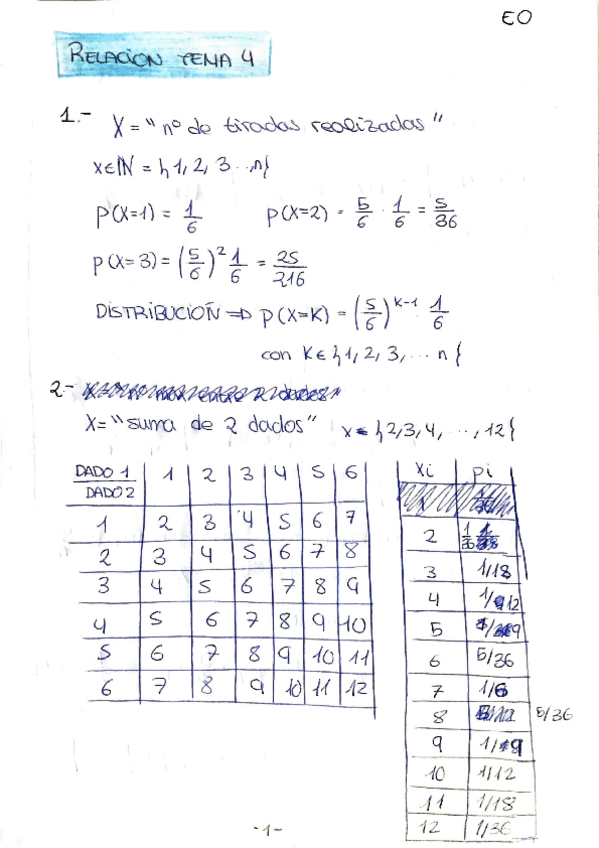 EO
RELACION TEMA 4
1.- X = "nº de tiradas realizadas"
x∈ℕ = {1, 2, 3 ...n}
p(X=1) = 1/6 p(X=2) = 5/6 · 1/6 = 5/36
p(X=3) = (5/6)² 1/6 = 25/216
DISTRIBUCIOÑ ⇒ p(X=K) = (5/6)^K-1 · 1/6
con K∈{1, 2, 3, ... n}
2.-
X= "suma de 2 dados" x∈{2,3,4, ..., 12}
DADO 1 / DADO 2 | 1 | 2 | 3 | 4 | 5 | 6
1 | 2 | 3 | 4 | 5 | 6 | 7
2 | 3 | 4 | 5 | 6 | 7 | 8
3 | 4 | 5 | 6 | 7 | 8 | 9
4 | 5 | 6 | 7 | 8 | 9 | 10
5 | 6 | 7 | 8 | 9 | 10 | 11
6 | 7 | 8 | 9 | 10 | 11 | 12
xi | pi
2 | 1/36
3 | 1/18
4 | 1/12
5 | 1/9
6 | 5/36
7 | 1/6
8 | 5/36
9 | 1/9
10 | 1/12
11 | 1/18
12 | 1/36
-1-